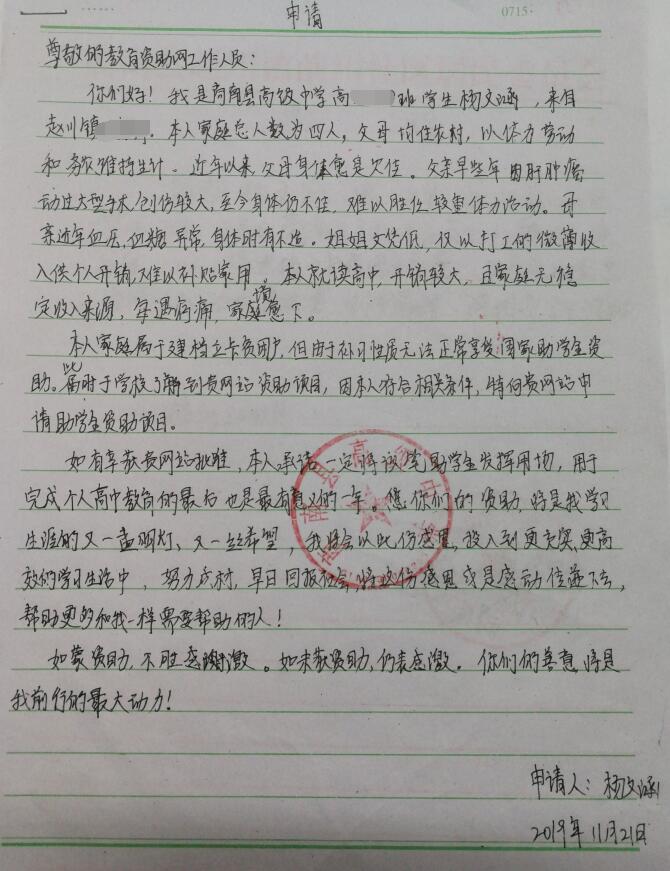 0715
申请
尊敬的教育资助网工作人员:
你们好!我是商南县高级中学高 班学生杨文涵,来自
赵川镇 .本人家庭总人数为四人,父母均住农村,以体力劳动
和务农维持生计.近年以来,父母身体愈是欠佳.父亲早些年因肝肿瘤
动过大型手术,创伤较大,至今身体仍不佳,难以胜任较重体力活动.母
亲近年血压,血糖异常,身体时有不适.姐姐文凭低,仅以打工的微薄收
入供个人开销,难以补贴家用.本人就读高中,开销较大,且家庭无稳
定收入来源,每遇病痛,家庭境愈下。
本人家庭属于建档立卡贫困户,但由于补习性质无法正常享受国家助学金资
助.此时于学校了解到贵网站资助项目,因本人符合相关条件,特向贵网站申
请助学金资助项目.
如有幸获贵网站批准,本人承诺一定将该笔助学金发挥用场,用于
完成个人高中教育的最后也是最有意义的一年.你们的资助,将是我学习
生涯的又一盏明灯、又一丝希望,我将会以此份感恩,投入到更充实,更高
效的学习生活中,努力成材,早日回报社会,将这份感恩或是感动传递下去,
帮助更多和我一样需要帮助的人!
如蒙资助,不胜感谢激.如未获资助,仍表感激.你们的善意,将是
我前行的最大动力!
申请人:杨文涵
2019年11月21日